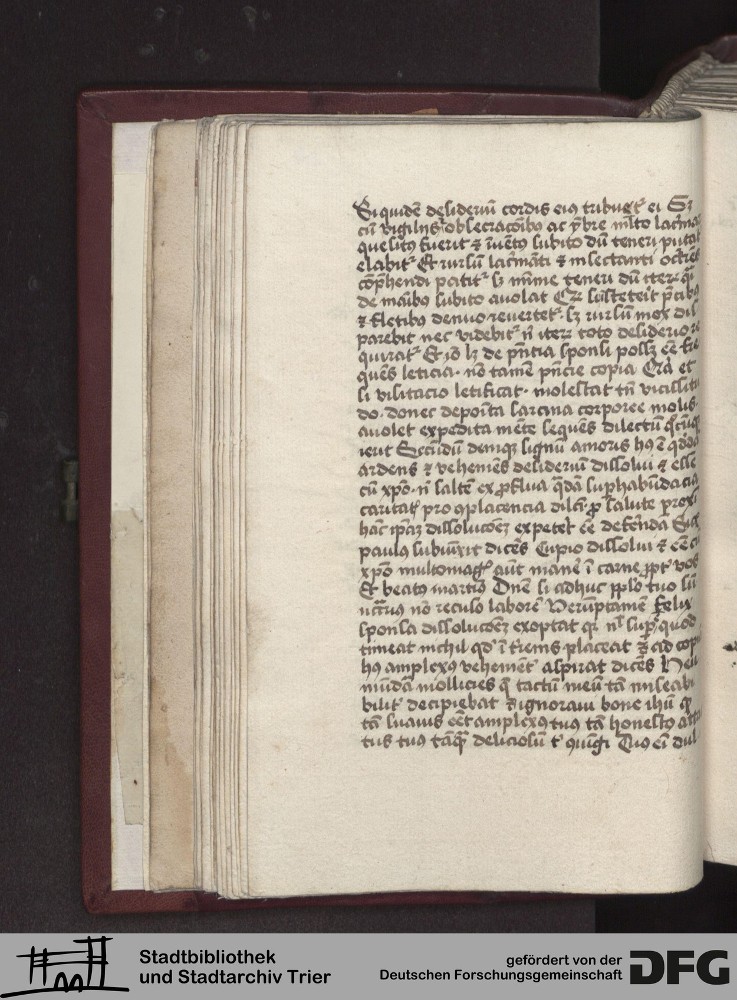 Si quidē desideriū cordis eiꝰ tribuet̉ ei Sꝫ
cū vigilijs obsecracōibꝰ ac ymbre m̄lto lacrima
quesitꝰ fuerit ⁊ īuētꝰ subito dū teneri putat̉
elabit̉ Et rursū lacrimāti ⁊ insectanti
cōp̄hendi patit̉ sꝫ mīme teneri dū iterꝫ q̄si
de maībꝰ subito auolat Et si īsteterit p̄cibꝰ
⁊ fletibꝰ denuo reuertet̉ sꝫ rursū mox dis
parebit nec videbit̉ n̄ iterꝫ toto desiderio re
quirat̉ Et iō lꝫ de p̄ntia sponsi possꝫ eē fre
quēs leticia nō tamē p̄ncie copia Qꝛ et
si visitacio letificat molestat tn̄ vicissitu
do donec deposita sarcina corporee molis
auolet expedita mēte sequēs dilectū q̊cūqꝫ
ierit Secūdū deniqꝫ signū amoris hꝰ ē qdā
ardens ⁊ vehemēs desideriū dissolui ⁊ esse
cū xp̄o n̄ saltē ex ꝓflua q̄dā suphabūdacia
caritatꝭ pro ꝯplacencia dilcī ꝓ salute proxi
hāc ip̄aꝫ dissolucōeꝫ expetet eē Sic
paulꝰ subiūxit dicēs Cupio dissolui ⁊ eē cū
xp̄o multomagꝭ aūt manē ī carne ꝓpt̉ vos
Et beatꝰ martinꝰ Dn̄e si adhuc pp̄lo tuo sū
nc̄cariꝰ nō recuso laborē Verūptamē felix
sponsa dissolucōeꝫ exoptat qꝛ nl̄ supꝭ quod
timeat nichil qd̓ ī t̄renis placeat ⁊ ad cop
hꝰ amplexꝰ vehement̉ aspirat dicēs Heu
mūdāa mollicies q̄ tactū meū tā miseabi
bilit̉ decipiebat ⁊ ignoraui bone ihū qꝛ
tā suauis eēt amplexꝰ tuꝰ tā honestꝰ atta
tus tuꝰ tāqꝫ deliciosū Quo eī dul
Stadtbibliothek
und Stadtarchiv Trier
gefördert von der
Deutschen Forschungsgemeinschaft
DFG